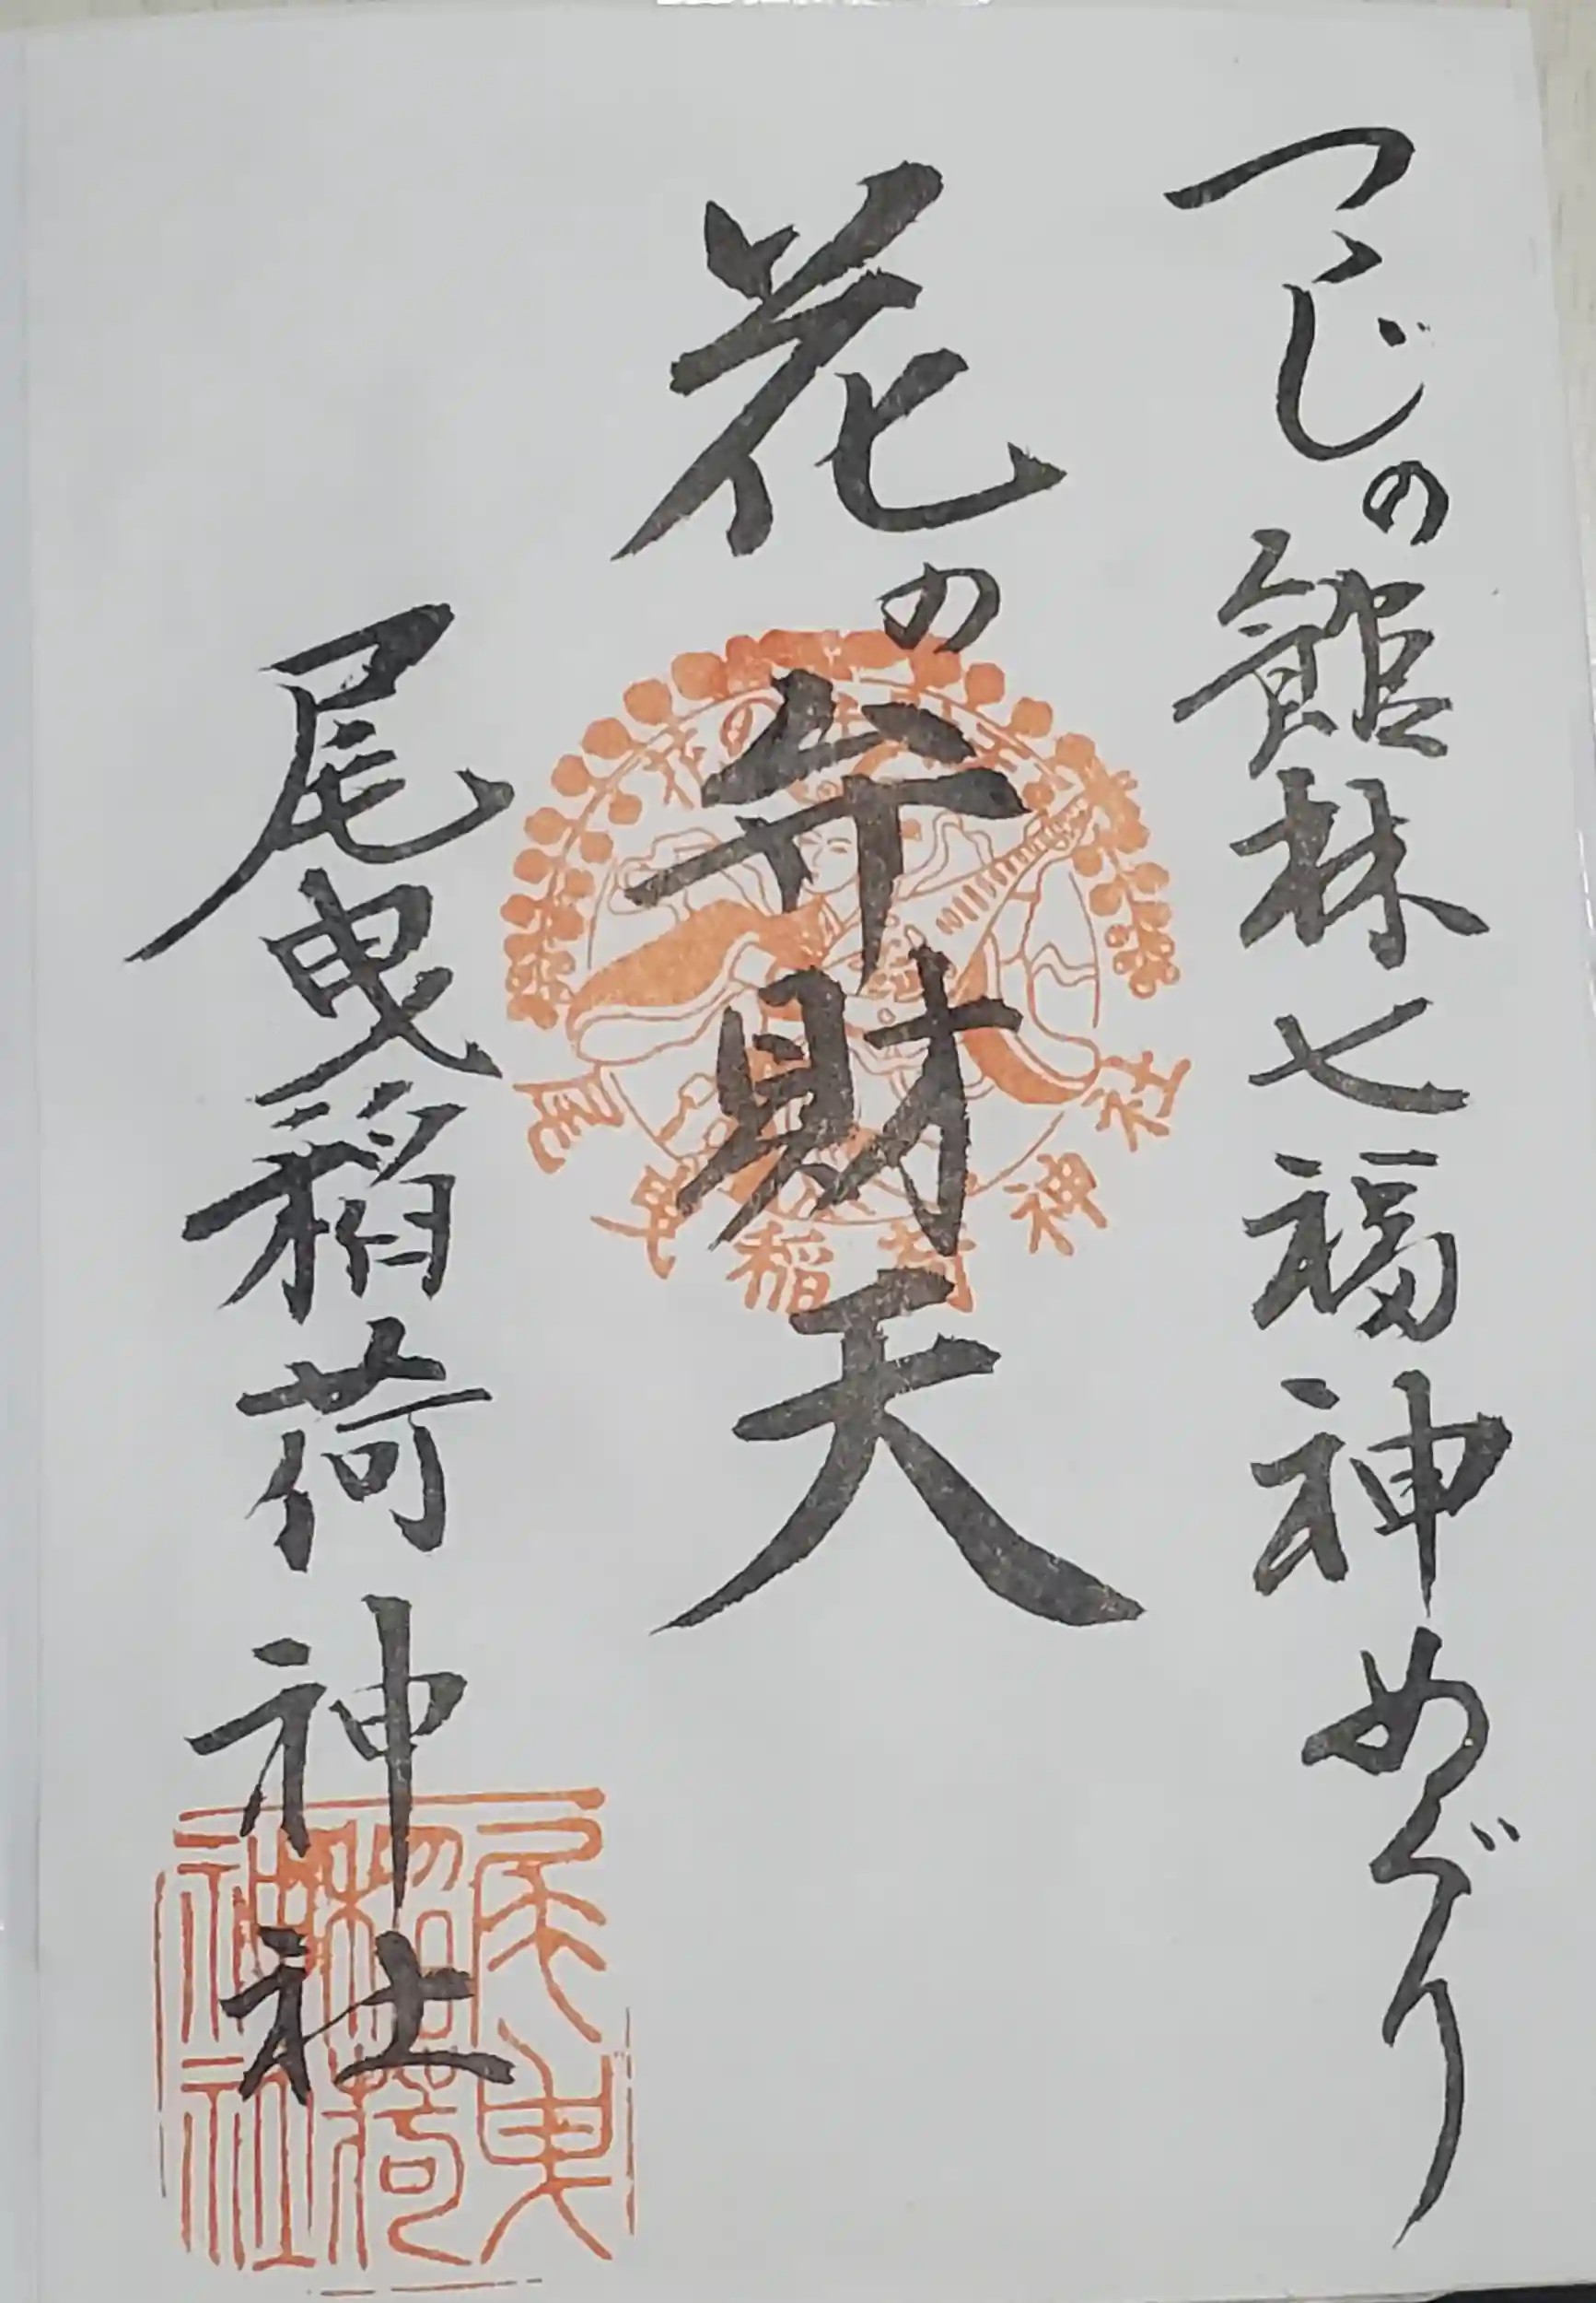 つゝじの館林七福神めぐり
花の弁財天
尾曳稲荷神社
花の弁財天
尾曳稲荷神社
尾曳
稲荷
神社